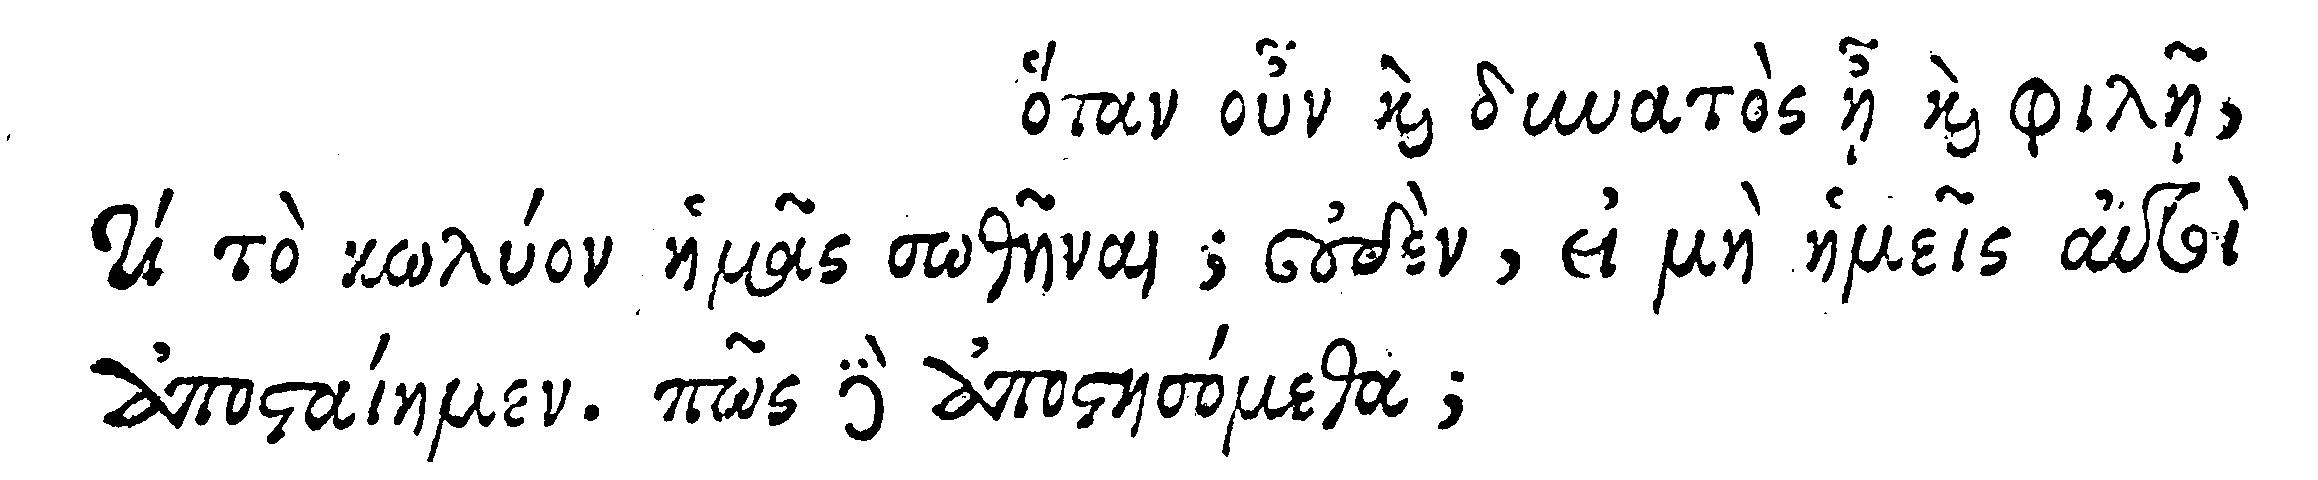 ὅταν οὖν καὶ δυνατὸς ᾖ καὶ φιλῇ,
τί τὸ κωλύον ἡμᾶς σωθῆναι; οὐδὲν, εἰ μὴ ἡμεῖς αὐτοὶ
ἀποσταίημεν. πῶς δὲ ἀποστησόμεθα;